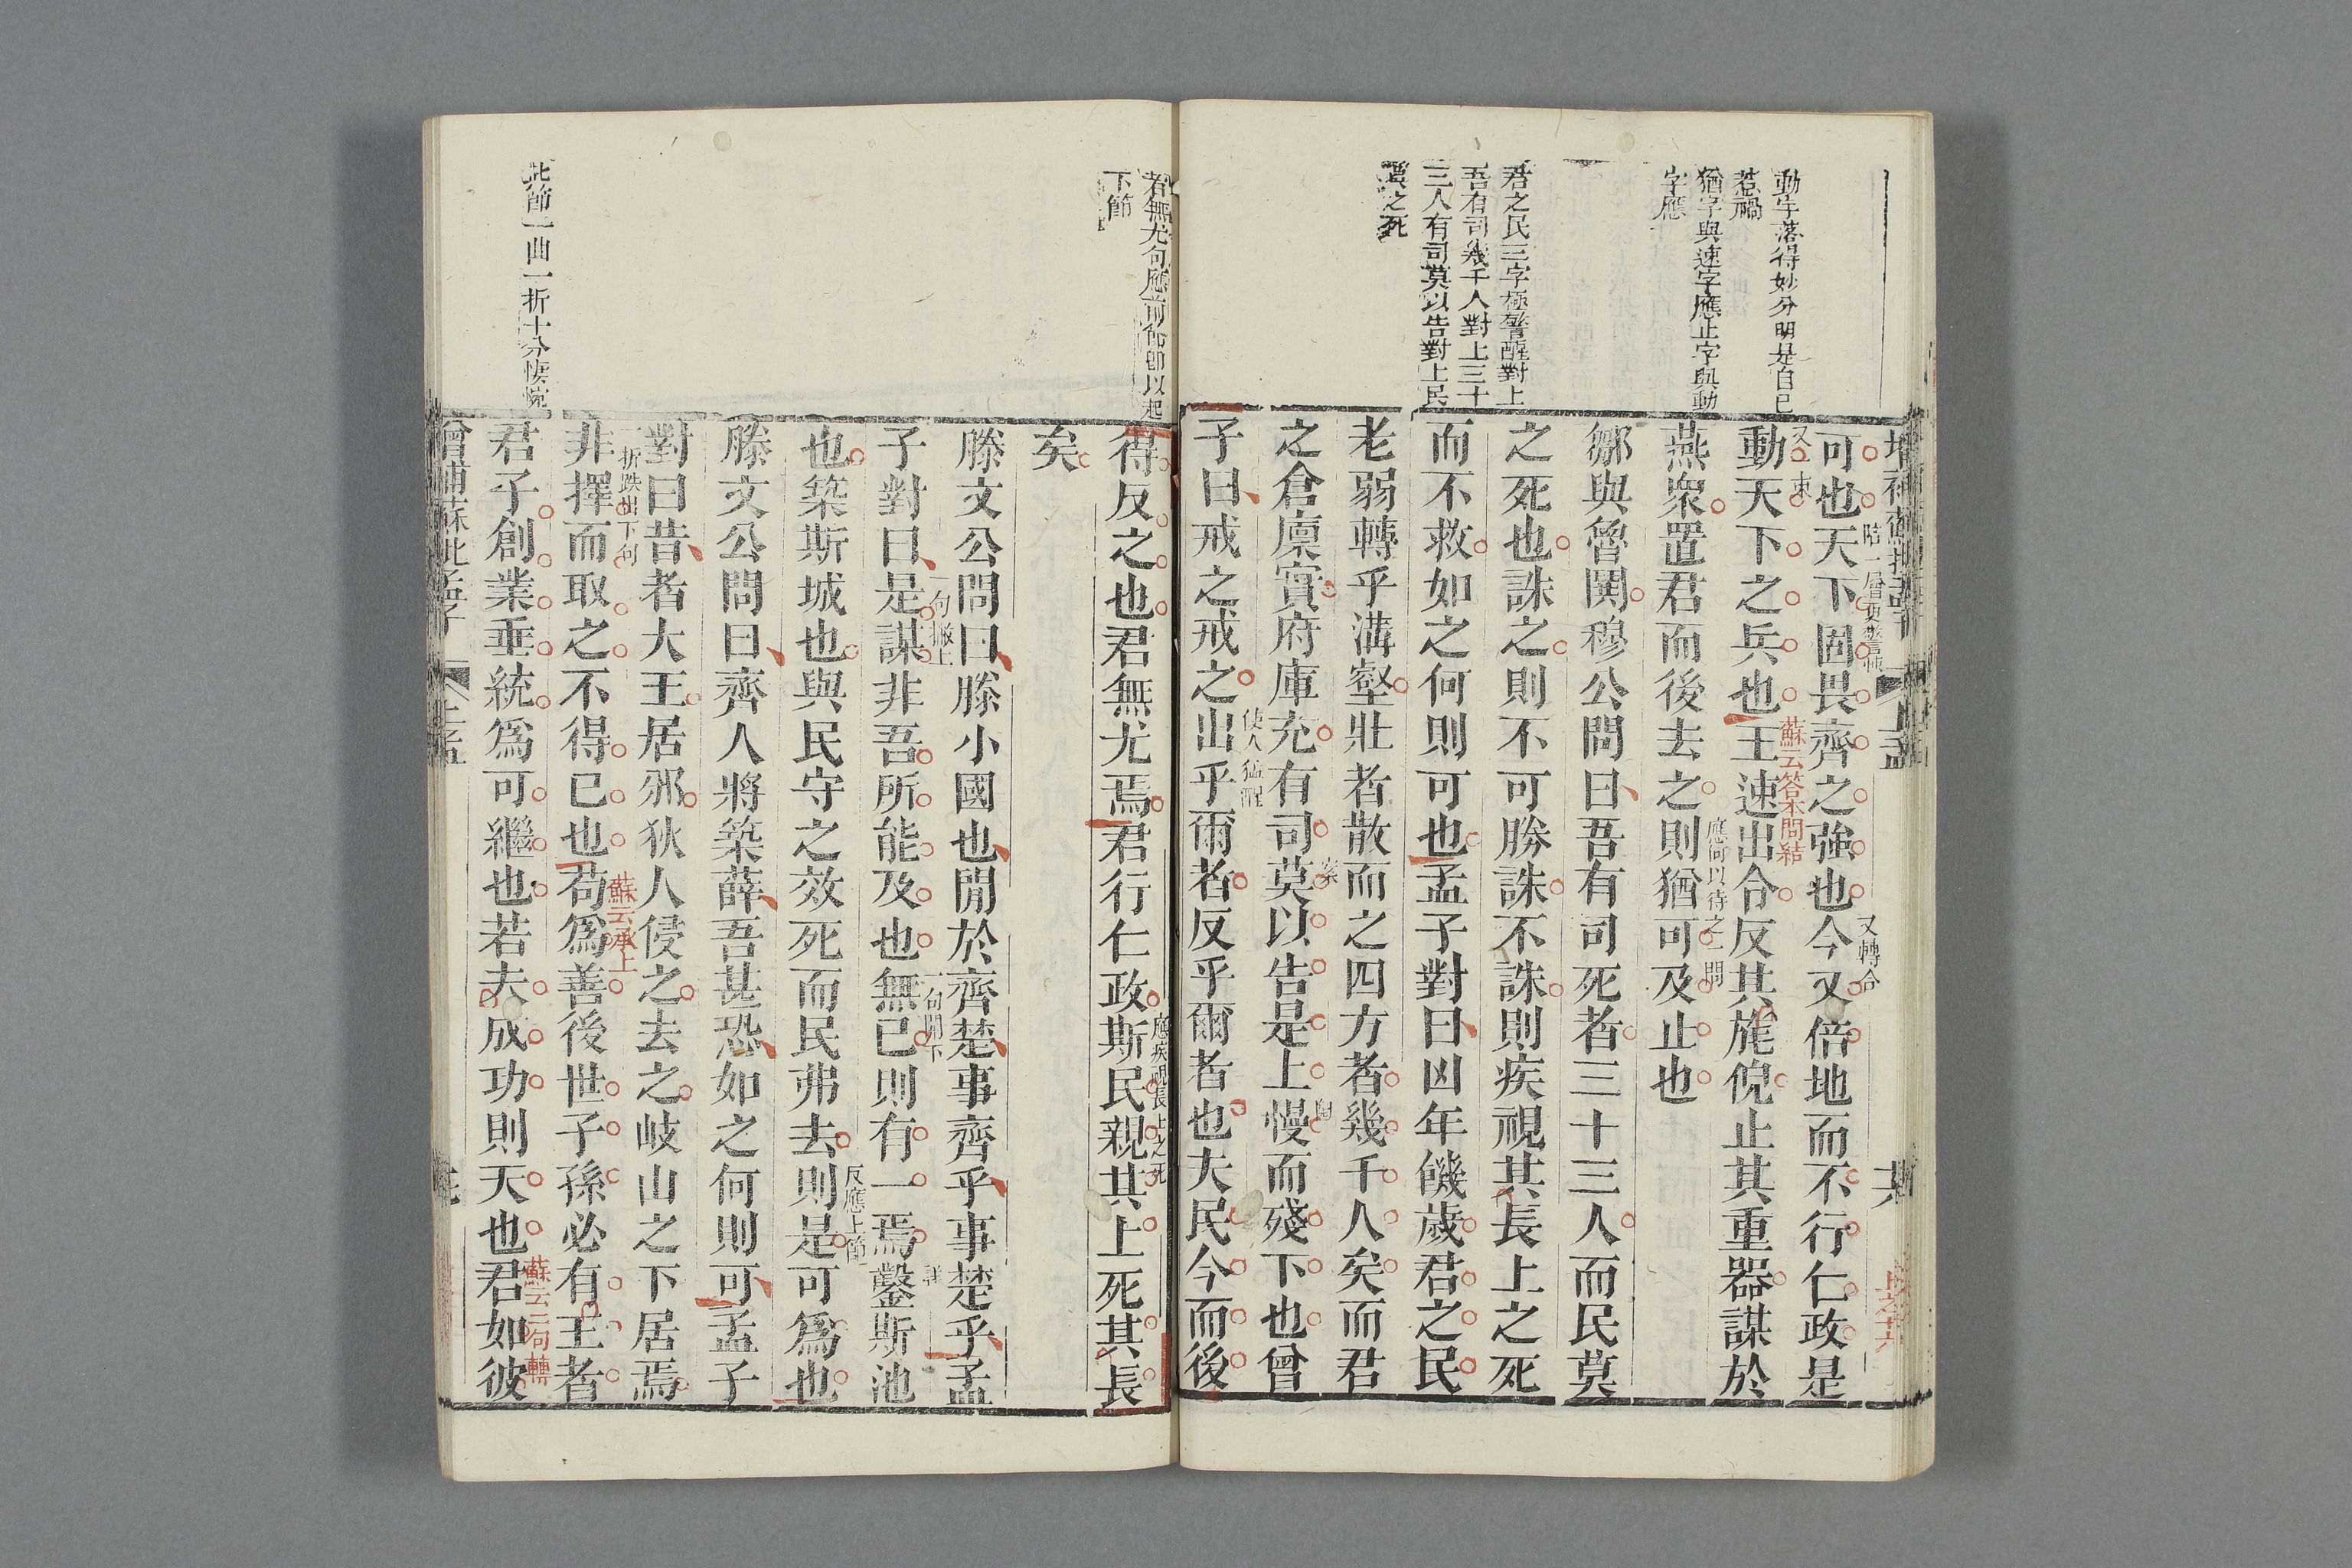 動字落得妙分明是自己
惹禍
猶字與速字應止字與動
字應
君之民三字極警醒對上
吾有司幾千人對上三十
三人有司莫以告對上民
莫之死
上孟
共
上之十六
可也天下固畏齊之強也今又倍地而不行仁政是
陪一層更警悚
又轉合
動天下之兵也王速出令反其旄倪止其重器謀於
又一束
蘇云答本問結
燕衆置君而後去之則猶可及止也
應何以待之一問
鄒與魯鬨穆公問曰吾有司死者三十三人而民莫
之死也誅之則不可勝誅不誅則疾視其長上之死
而不救如之何則可也孟子對曰凶年饑歲君之民
老弱轉乎溝壑壯者散而之四方者幾千人矣而君
之倉廩實府庫充有司莫以告是上慢而殘下也曾
案
子曰戒之戒之出乎爾者反乎爾者也夫民今而後
使人猛醒
若無尤句應前節卽以起
下節
此節一曲一折十分悽惋
得反之也君無尤焉君行仁政斯民親其上死其長
應疾視長上之死
矣
滕文公問曰滕小國也閒於齊楚事齊乎事楚乎孟
子對曰是謀非吾所能及也無已則有一焉鑿斯池
一句撇上
一句開下
也築斯城也與民守之效死而民弗去則是可爲也
反應上節
滕文公問曰齊人將築薛吾甚恐如之何則可孟子
對曰昔者大王居邠狄人侵之去之岐山之下居焉
非擇而取之不得已也苟爲善後世子孫必有王者
一折跌出下句
蘇云承上
君子創業垂統爲可繼也若夫成功則天也君如彼
蘇云二句轉
增補蘇批孟子
上孟